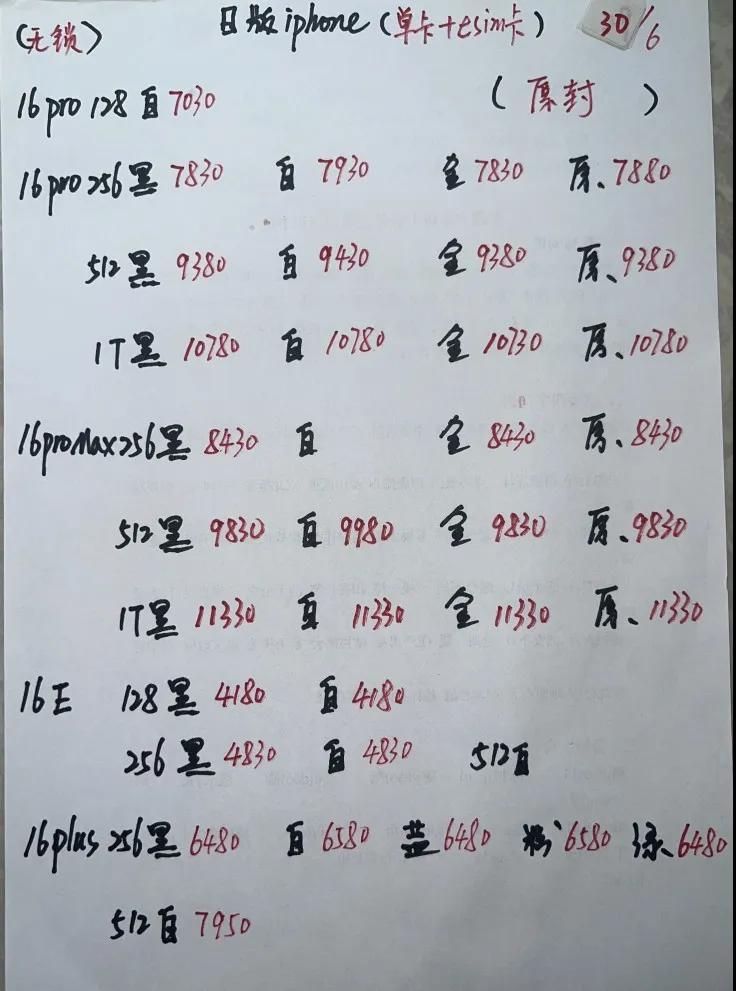 (无锁) 日版iphone(单卡+esim卡) 30/6
16pro 128 白 7030 (原封)
16pro 256 黑 7830 白 7930 金 7830 原、7880
512 黑 9380 白 9430 金 9380 原、9380
1T 黑 10780 白 10780 金 10730 原、10780
16proMax 256 黑 8430 白 金 8430 原、8430
512 黑 9830 白 9980 金 9830 原、9830
1T 黑 11330 白 11330 金 11330 原、11330
16E 128 黑 4180 白 4180
256 黑 4830 白 4830 512 白
16plus 256 黑 6480 白 6580 蓝 6480 粉 6580 绿、6480
512 白 7950